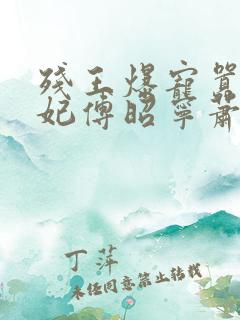 残王爆宠嚣
妃傅昭宁萧
丁萍
未经同意禁止转载